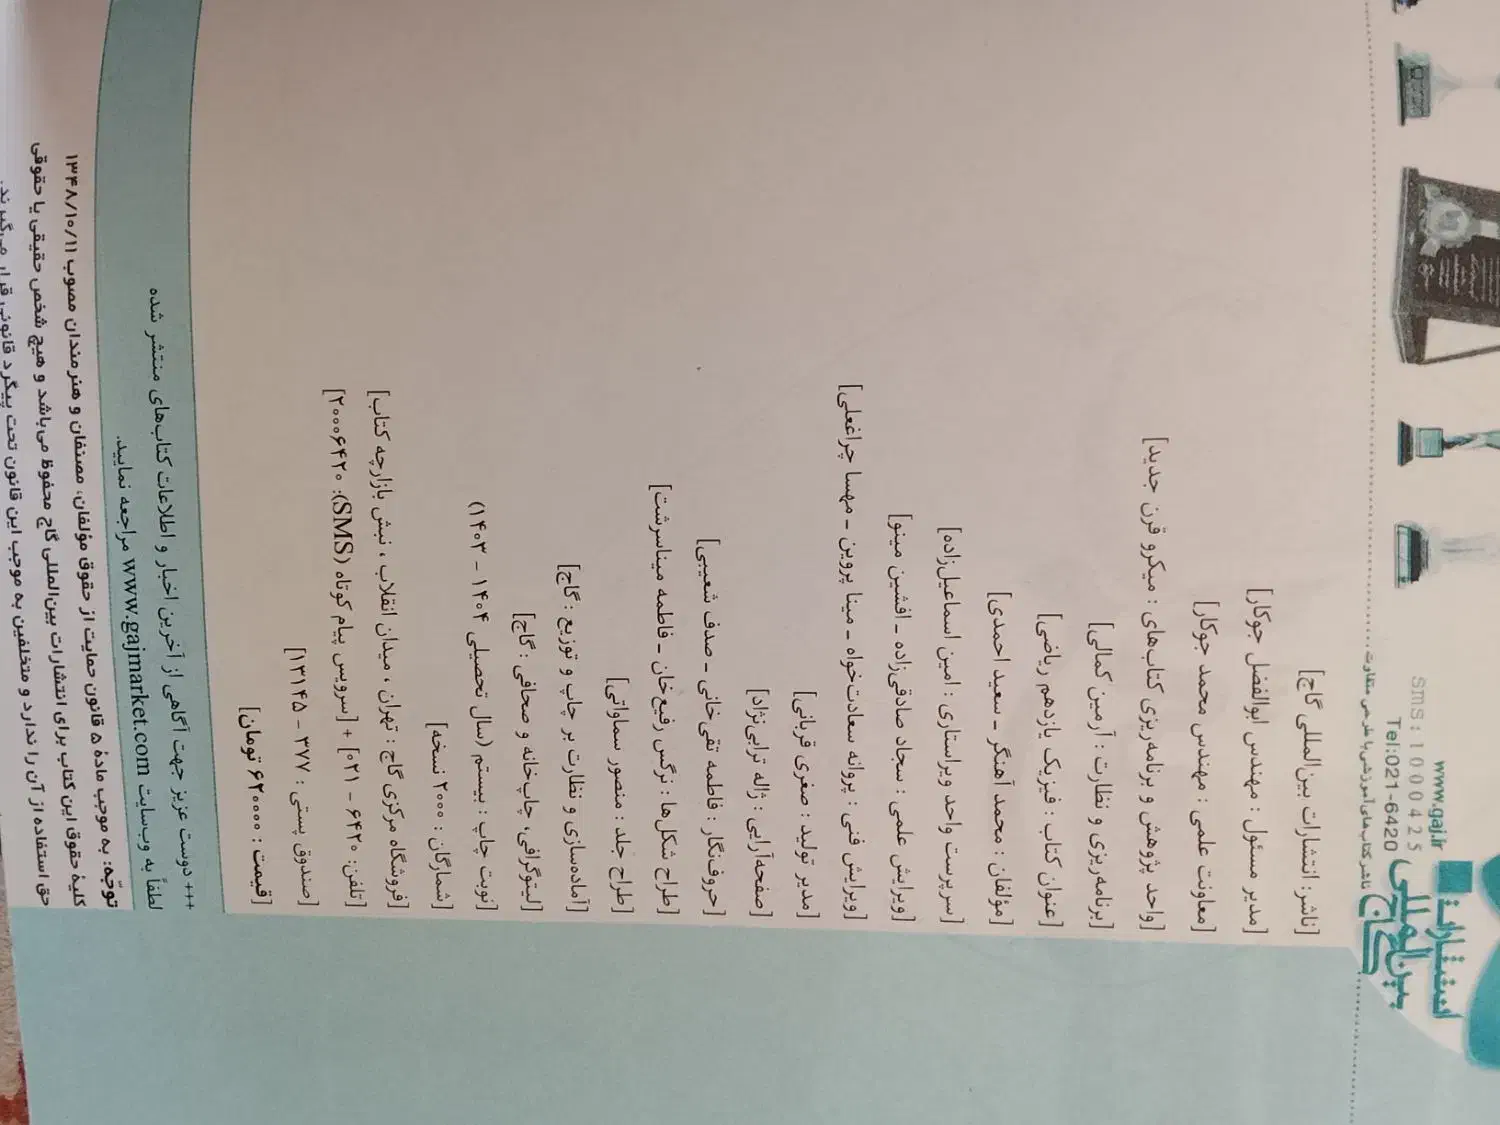 انتشارات
بین‌المللی
گاج
www.gaj.ir
sms:1000425
Tel:021-6420
ناشر کتاب‌های آموزشی با طرحی متفاوت........
[ناشر: انتشارات بین‌المللی گاج]
[مدیر مسئول : مهندس ابوالفضل جوکار]
[معاونت علمی : مهندس محمد جوکار]
[واحد پژوهش و برنامه‌ریزی کتاب‌های : میکرو قرن جدید]
[برنامه‌ریزی و نظارت : آرمین کمالی]
[عنوان کتاب : فیزیک یازدهم ریاضی]
[مؤلفان : محمد آهنگر ـ سعید احمدی]
[سرپرست واحد ویراستاری : امین اسماعیل‌زاده]
[ویرایش علمی : سجاد صادقی‌زاده ـ افشین مینو]
[ویرایش فنی : پروانه سعادت‌خواه ـ مینا پروین ـ مهسا چراغعلی]
[مدیر تولید : صغری قربانی]
[صفحه‌آرایی : ژاله ترابی‌نژاد]
[حروف‌نگار : فاطمه تقی‌خانی ـ صدف شعیبی]
[طراح شکل‌ها : نرگس رفیع‌خان ـ فاطمه میناسرشت]
[طراح جلد : منصور سماواتی]
[آماده‌سازی و نظارت بر چاپ و توزیع : گاج]
[لیتوگرافی، چاپ‌خانه و صحافی : گاج]
[نوبت چاپ : بیستم (سال تحصیلی ۱۴۰۴ - ۱۴۰۳)
[شمارگان : ۲۰۰۰ نسخه]
[فروشگاه مرکزی گاج : تهران ، میدان انقلاب ، نبش بازارچه کتاب]
[تلفن: ۶۴۲۰ - ۰۲۱] + [سرویس پیام کوتاه (SMS): ۲۰۰۰۶۴۲۰]
[صندوق پستی : ۳۷۷ - ۱۳۱۴۵]
[قیمت : ۶۲۰۰۰۰ تومان]
+++ دوست عزیز جهت آگاهی از آخرین اخبار و اطلاعات کتاب‌های منتشر شده
لطفاً به وب‌سایت www.gajmarket.com مراجعه نمایید.
توجّه: به موجب مادهٔ ۵ قانون حمایت از حقوق مؤلفان، مصنفان و هنرمندان مصوب ۱۳۴۸/۱۰/۱۱
کلیهٔ حقوق این کتاب برای انتشارات بین‌المللی گاج محفوظ می‌باشد و هیچ شخص حقیقی یا حقوقی
حق استفاده از آن را ندارد و متخلفین به موجب این قانون تحت پیگرد قانونی قرار می‌گیرند.